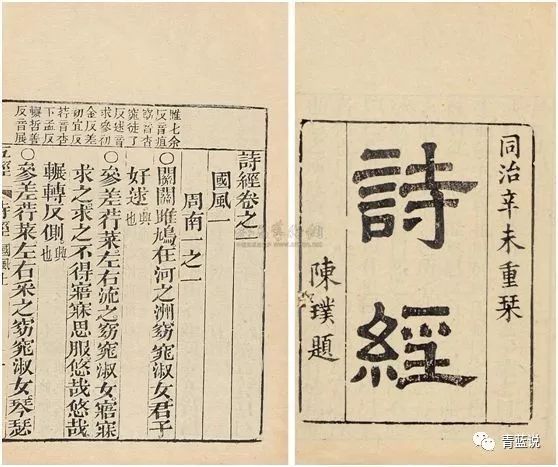 同治辛未重栞
詩經
陳璞題
雎七余
反音疽
窈音杳
窕徒了
反逑音
求參初
金反差
初宜反
下孟反
輾哲善
反音展
詩經卷之一
國風一
周南一之一
○關關雎鳩在河之洲窈窕淑女君子
好逑興也
○參差荇菜左右流之窈窕淑女寤寐
求之求之不得寤寐思服悠哉悠哉
輾轉反側興也
○參差荇菜左右采之窈窕淑女琴瑟
五經 詩經 國風上
青蓝说